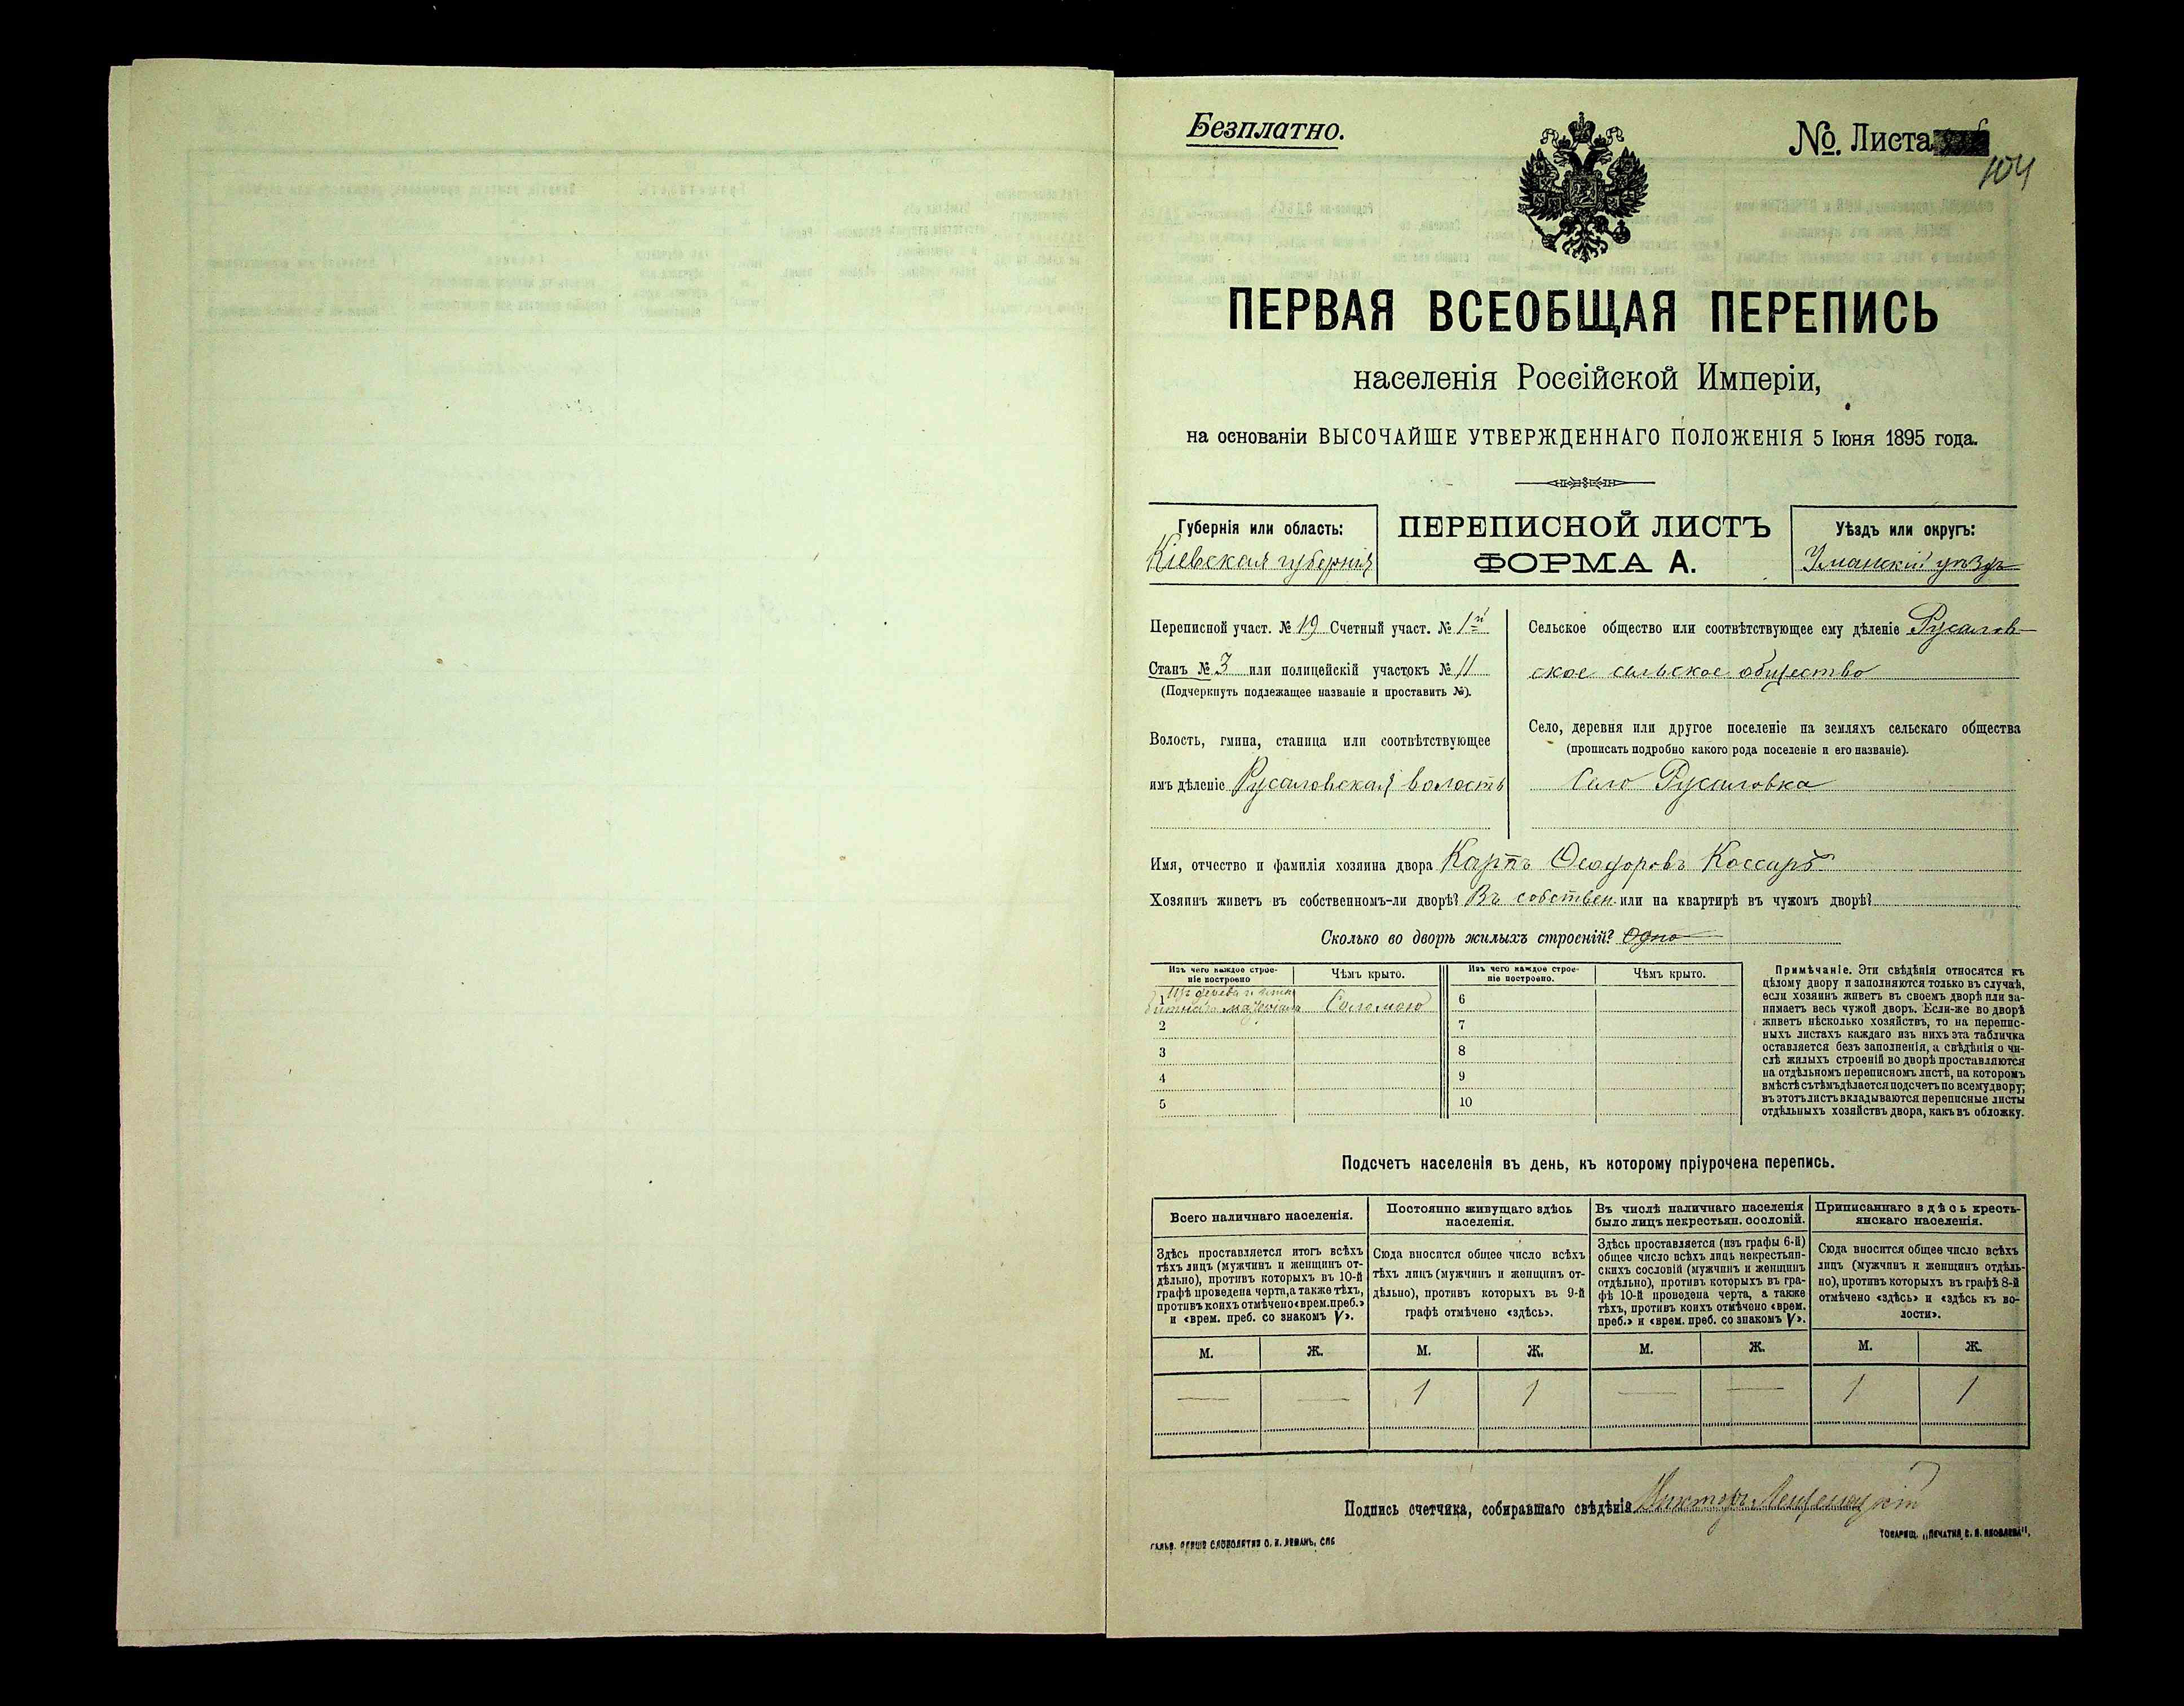 Безплатно.
№. Листа
104
ПЕРВАЯ ВСЕОБЩАЯ ПЕРЕПИСЬ
населенія Россійской Имперіи,
на основаніи ВЫСОЧАЙШЕ УТВЕРЖДЕННАГО ПОЛОЖЕНІЯ 5 Іюня 1895 года.
Губернія или область:
Кіевская губернія
ПЕРЕПИСНОЙ ЛИСТЪ
ФОРМА А.
Уѣздъ или округъ:
Уманскій уѣздъ
Переписной участ. № 19 Счетный участ. № 1й
Станъ № 3 или полицейскій участокъ № 11
(Подчеркнуть подлежащее названіе и проставить №).
Волость, гмина, станица или соотвѣтствующее
имъ дѣленіе Русаловская волость
Сельское общество или соотвѣтствующее ему дѣленіе Русалов-
ское сельское общество
Село, деревня или другое поселеніе на земляхъ сельскаго общества
(прописать подробно какого рода поселеніе и его названіе).
Село Русаловка
Имя, отчество и фамилія хозяина двора Карпъ Ѳеодоровъ Коссаръ
Хозяинъ живетъ въ собственномъ-ли дворѣ? Въ собствен. или на квартирѣ въ чужомъ дворѣ?
Сколько во дворѣ жилыхъ строеній? Одно
Изъ чего каждое строе-
ніе построено
Чѣмъ крыто.
Изъ чего каждое строе-
ніе построено.
Чѣмъ крыто.
1 Изъ дерева и
Соломою
6
2
7
3
8
4
9
5
10
Примѣчаніе. Эти свѣдѣнія относятся къ
цѣлому двору и заполняются только въ случаѣ,
если хозяинъ живетъ въ своемъ дворѣ или за-
нимаетъ весь чужой дворъ. Если-же во дворѣ
живетъ нѣсколько хозяйствъ, то на перепис-
ныхъ листахъ каждаго изъ нихъ эта табличка
оставляется безъ заполненія, а свѣдѣнія о чи-
слѣ жилыхъ строеній во дворѣ проставляются
на отдѣльномъ переписномъ листѣ, на которомъ
вмѣстѣ съ тѣмъ дѣлается подсчетъ по всему двору;
въ этотъ листъ вкладываются переписные листы
отдѣльныхъ хозяйствъ двора, какъ въ обложку.
Подсчетъ населенія въ день, къ которому пріурочена перепись.
Всего наличнаго населенія.
Постоянно живущаго здѣсь
населенія.
Въ числѣ наличнаго населенія
было лицъ некрестьян. сословій.
Приписаннаго здѣсь кресть-
янскаго населенія.
Здѣсь проставляется итогъ всѣхъ
тѣхъ лицъ (мужчинъ и женщинъ от-
дѣльно), противъ которыхъ въ 10-й
графѣ проведена черта, а также тѣхъ,
противъ коихъ отмѣчено «врем. преб.»
и «врем. преб. со знакомъ V».
Сюда вносится общее число всѣхъ
тѣхъ лицъ (мужчинъ и женщинъ от-
дѣльно), противъ которыхъ въ 9-й
графѣ отмѣчено «здѣсь».
Здѣсь проставляется (изъ графы 6-й)
общее число всѣхъ лицъ некрестьян-
скихъ сословій (мужчинъ и женщинъ
отдѣльно), противъ которыхъ въ гра-
фѣ 10-й проведена черта, а также
тѣхъ, противъ коихъ отмѣчено «врем.
преб.» и «врем. преб. со знакомъ V».
Сюда вносится общее число всѣхъ
лицъ (мужчинъ и женщинъ отдѣль-
но), противъ которыхъ въ графѣ 8-й
отмѣчено «здѣсь» и «здѣсь къ во-
лости».
М. Ж. М. Ж. М. Ж. М. Ж.
— — 1 1 — — 1 1
Подпись счетчика, собиравшаго свѣдѣнія
ТОВАРИЩ. „ПЕЧАТНЯ С. П. ЯКОВЛЕВА",